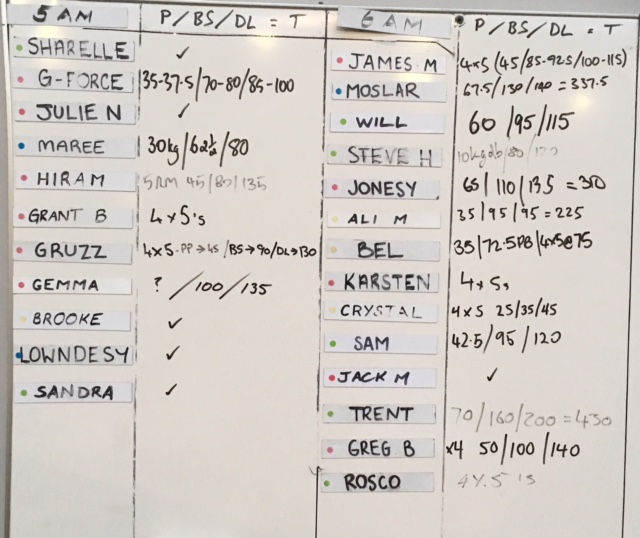 5 AM P/BS/DL = T
SHARELLE ✓
G-FORCE 35-37.5/70-80/85-100
JULIE N ✓
MAREE 30kg/62½/80
HIRAM 5RM 45/80/135
GRANT B 4x5's
GRUZZ 4x5-PP→45/BS→90/DL→130
GEMMA ? /100/135
BROOKE ✓
LOWNDESY ✓
SANDRA ✓
6 AM P/BS/DL = T
JAMES M 4x5 (45/85-92.5/100-115)
MOSLAR 67.5/130/140 = 337.5
WILL 60/95/115
STEVE H
JONESY 65/110/135 = 350
ALI M 35/95/95 = 225
BEL 35/72.5PB/4x5@75
KARSTEN 4x5s
CRYSTAL 4x5 25/35/45
SAM 42.5/95/120
JACK M ✓
TRENT 70/160/200 = 430
GREG B x4 50/100/140
ROSCO